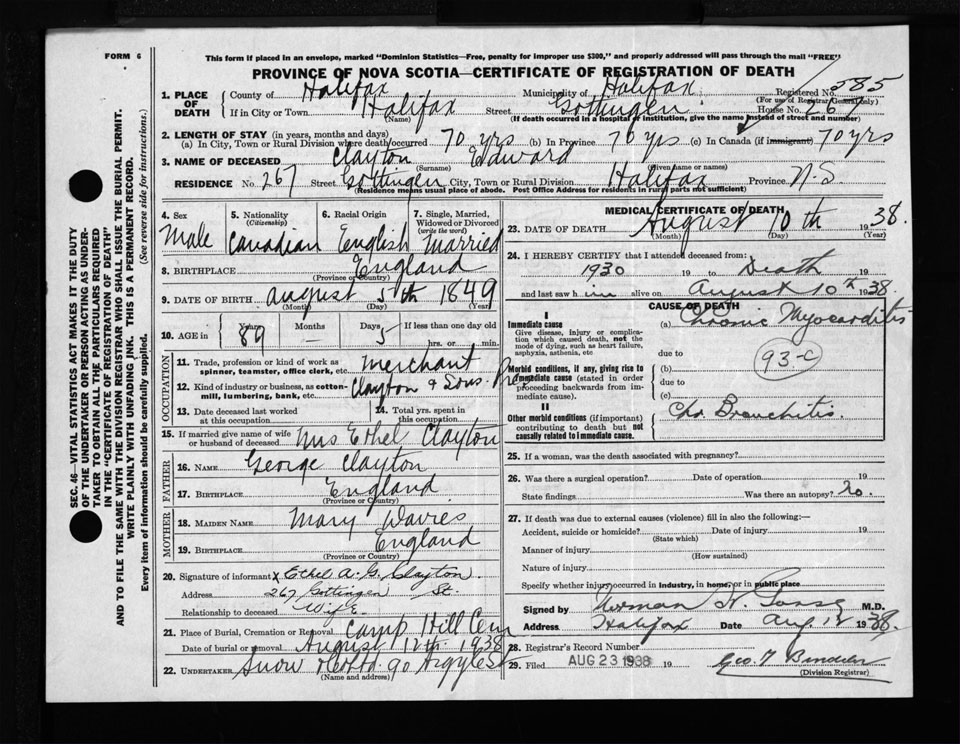 FORM 6
This form if placed in an envelope, marked "Dominion Statistics—Free, penalty for improper use $300," and properly addressed will pass through the mail "FREE"
PROVINCE OF NOVA SCOTIA—CERTIFICATE OF REGISTRATION OF DEATH
585
1. PLACE OF DEATH County of Halifax Municipality of Halifax Registered No.
(For use of Registrar General only)
If in City or Town Halifax Street Gottingen House No. 267
(Name) (If death occurred in a hospital or institution, give the name instead of street and number)
2. LENGTH OF STAY (in years, months and days)
(a) In City, Town or Rural Division where death occurred 70 yrs (b) In Province 70 yrs (c) In Canada (if immigrant) 70 yrs
3. NAME OF DECEASED Clayton Edward
(Surname) (Given name or names)
RESIDENCE No. 267 Street Gottingen City, Town or Rural Division Halifax Province N.S
(Residence means usual place of abode. Post Office Address for residents in rural parts not sufficient)
4. Sex
Male
5. Nationality
(Citizenship)
Canadian
6. Racial Origin
English
7. Single, Married, Widowed or Divorced
(write the word)
Married
8. BIRTHPLACE England
(Province or Country)
9. DATE OF BIRTH August 5th 1849
(Month) (Day) (Year)
10. AGE in Years Months Days If less than one day old
89 — 5 hrs. or min.
OCCUPATION
11. Trade, profession or kind of work as spinner, teamster, office clerk, etc. Merchant
12. Kind of industry or business, as cotton-mill, lumbering, bank, etc. Clayton & Sons
13. Date deceased last worked at this occupation
14. Total yrs. spent in this occupation
15. If married give name of wife or husband of deceased Mrs Ethel Clayton
FATHER
16. NAME George Clayton
17. BIRTHPLACE England
(Province or Country)
MOTHER
18. MAIDEN NAME Mary Davies
19. BIRTHPLACE England
(Province or Country)
20. Signature of informant x Ethel A. G. Clayton
Address 267 Gottingen St.
Relationship to deceased Wife
21. Place of Burial, Cremation or Removal Camp Hill Cem
Date of burial or removal August 12th 1938
22. UNDERTAKER Snow & Co Ltd. 90 Argyle St
(Name and address)
MEDICAL CERTIFICATE OF DEATH
23. DATE OF DEATH August 10th 1938.
(Month) (Day) (Year)
24. I HEREBY CERTIFY that I attended deceased from:
1930 19 to Death 19
and last saw him alive on August 10th 1938.
CAUSE OF DEATH
I
Immediate cause
Give disease, injury or complication which caused death, not the mode of dying, such as heart failure, asphyxia, asthenia, etc
(a) Chronic Myocarditis
due to
93-c
Morbid conditions, if any, giving rise to immediate cause (stated in order proceeding backwards from immediate cause).
(b)
due to
(c)
II
Other morbid conditions (if important) contributing to death but not causally related to immediate cause.
Chr. Bronchitis.
25. If a woman, was the death associated with pregnancy?
26. Was there a surgical operation? Date of operation 19
State findings Was there an autopsy? No.
27. If death was due to external causes (violence) fill in also the following:—
Accident, suicide or homicide? Date of injury 19
(State which)
Manner of injury
(How sustained)
Nature of injury
Specify whether injury occurred in industry, in home, or in public place
Signed by Norman H. M.D.
Address Halifax Date Aug 12 1938.
28. Registrar's Record Number
29. Filed AUG 23 1938 19 Geo. T
(Division Registrar)
SEC. 46—VITAL STATISTICS ACT MAKES IT THE DUTY
OF THE UNDERTAKER OR PERSON ACTING AS UNDER-
TAKER TO OBTAIN ALL THE PARTICULARS REQUIRED
IN THE "CERTIFICATE OF REGISTRATION OF DEATH"
AND TO FILE THE SAME WITH THE DIVISION REGISTRAR WHO SHALL ISSUE THE BURIAL PERMIT.
WRITE PLAINLY WITH UNFADING INK. THIS IS A PERMANENT RECORD.
Every item of information should be carefully supplied. (See reverse side for instructions.)